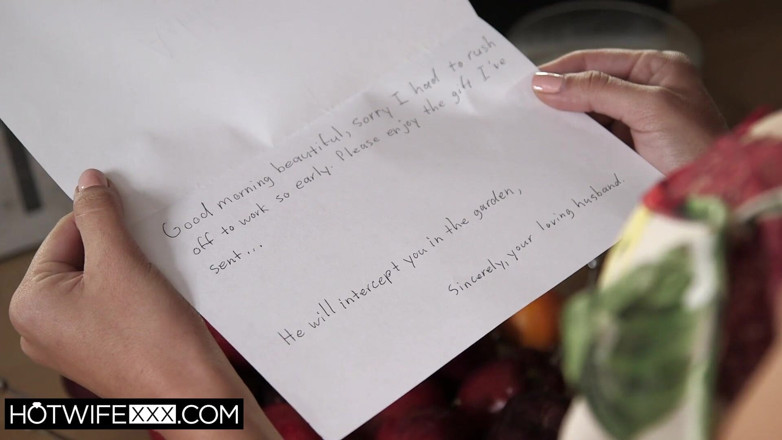 Good morning beautiful, sorry I had to rush
off to work so early. Please enjoy the gift I've
sent...
He will intercept you in the garden,
Sincerely, your loving husband.
HOTWIFEXXX.COM